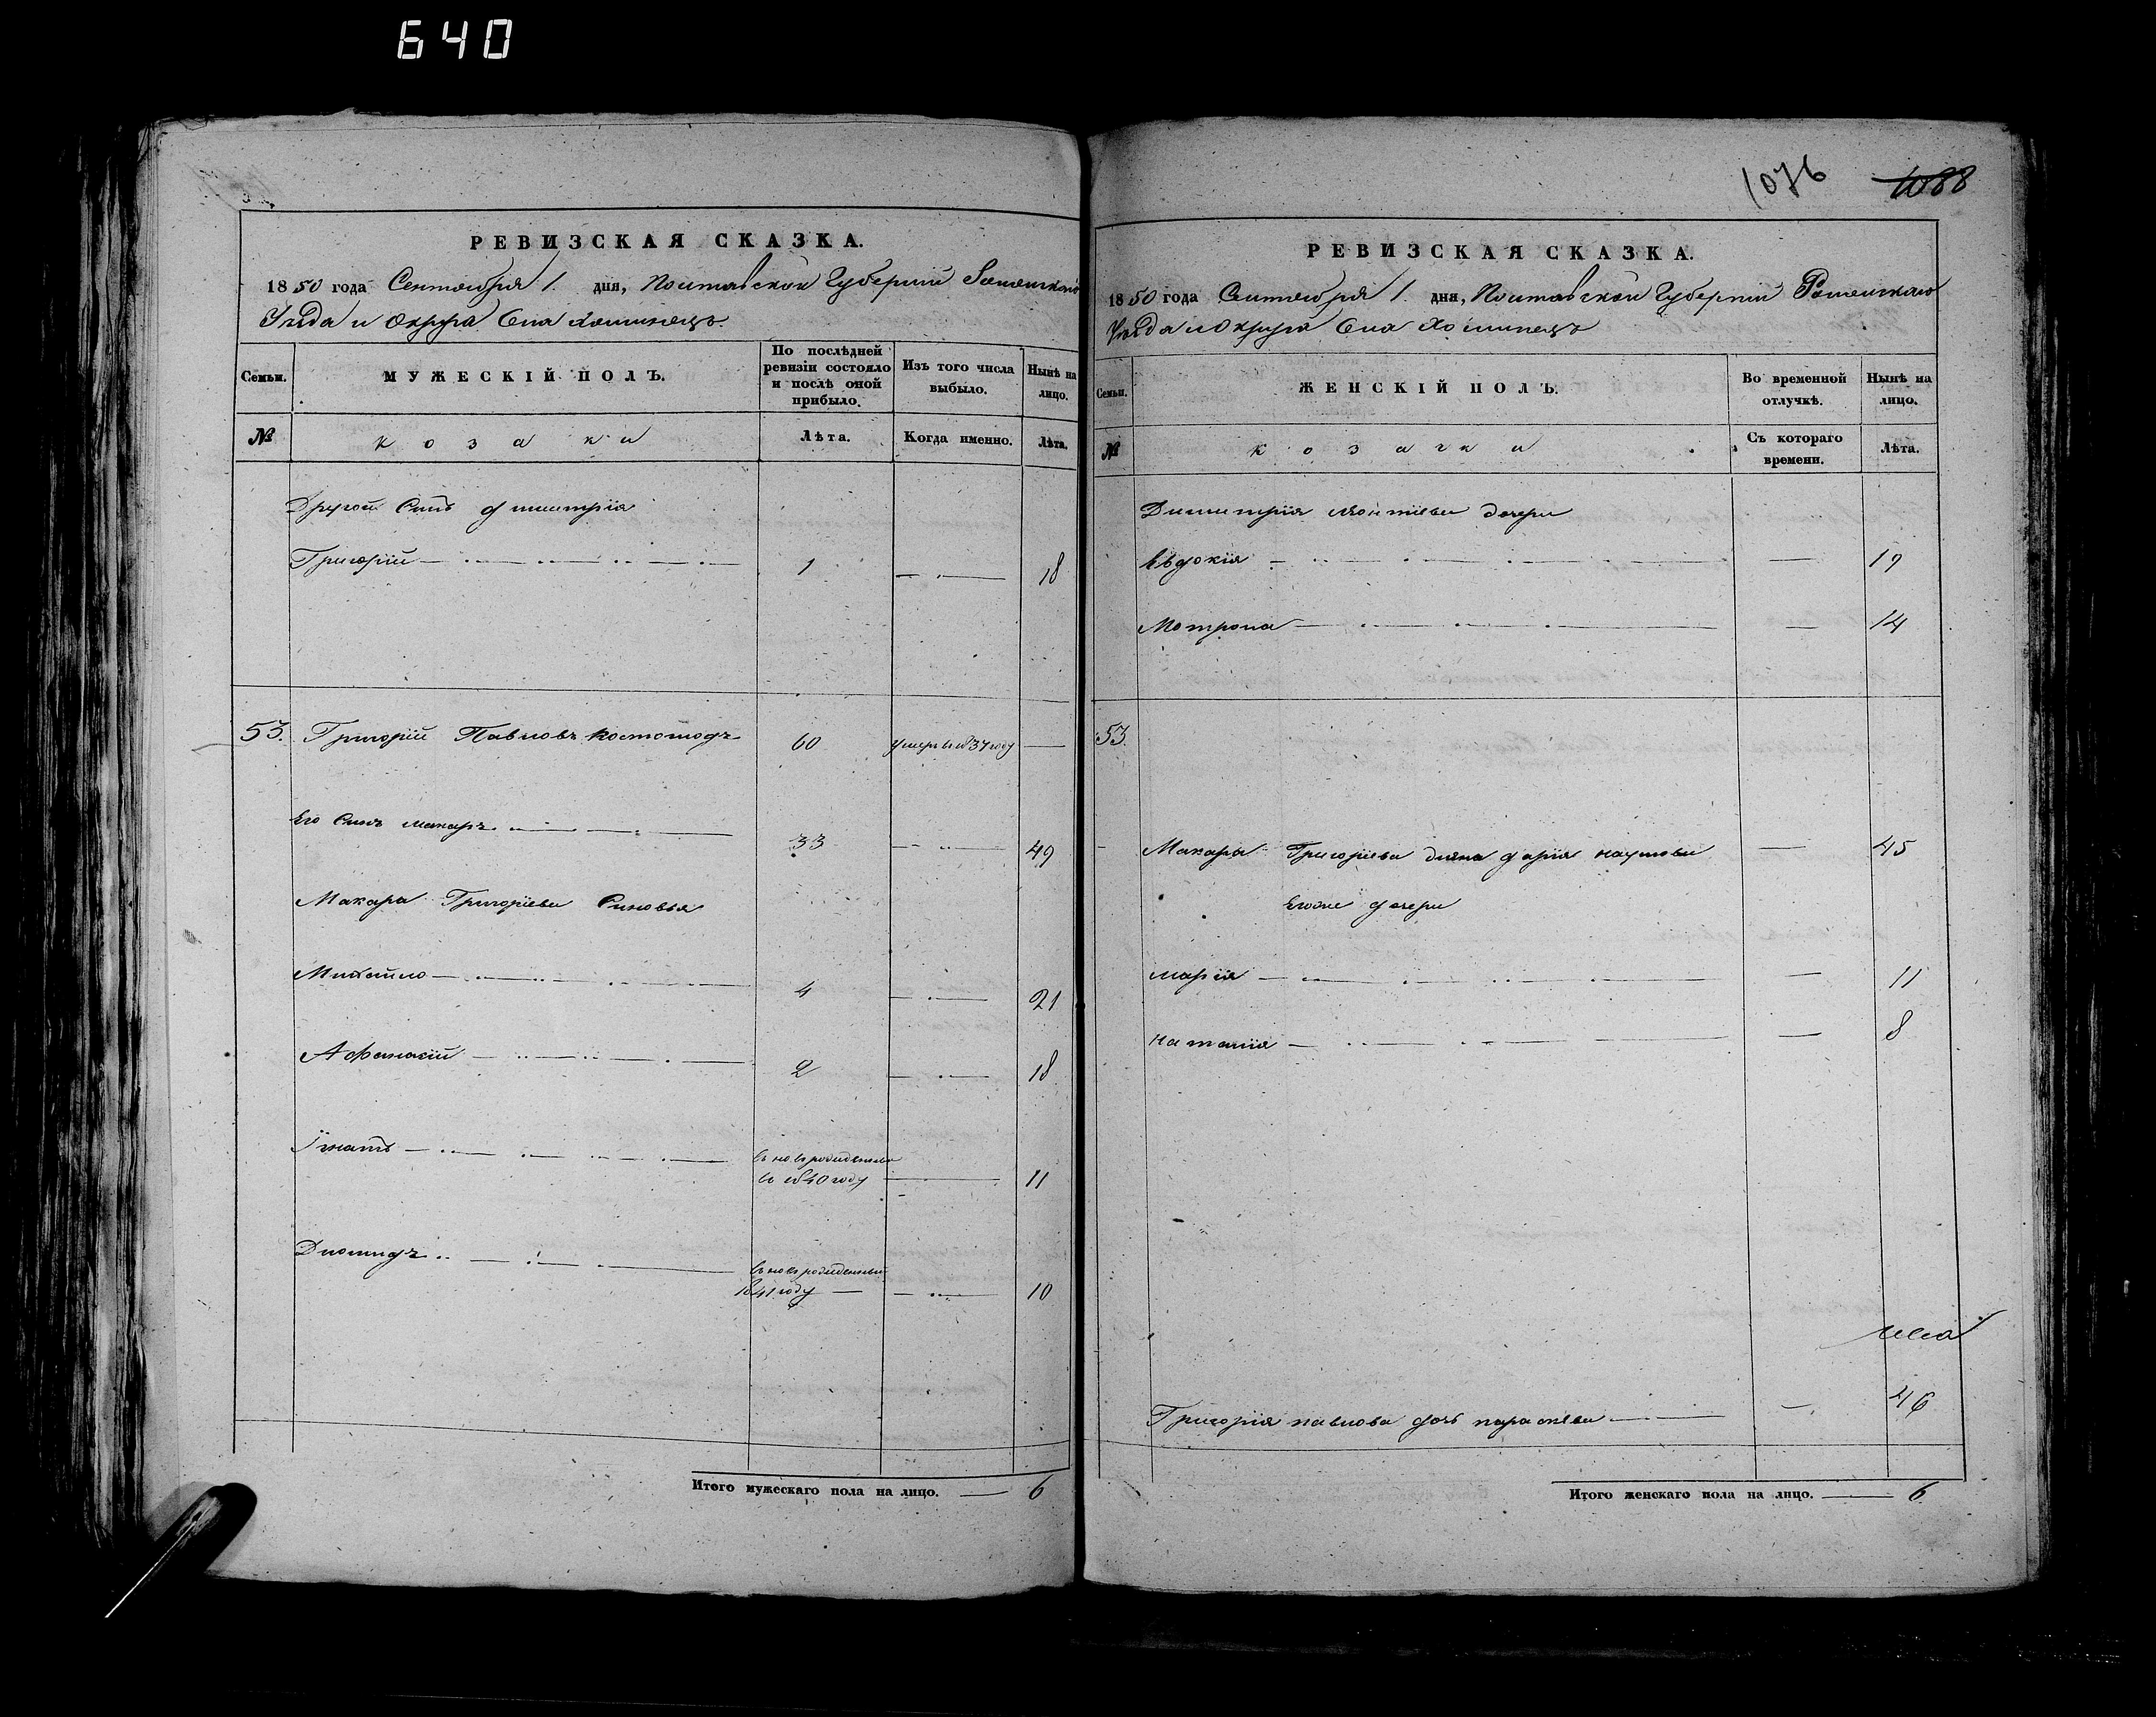 640
РЕВИЗСКАЯ СКАЗКА.
1850 года Сентября 1. дня, Полтавской Губернии Роменского
Уѣзда и Округа Села Хоминецъ.
Семьи.
МУЖЕСКІЙ ПОЛЪ.
По послѣдней ревизіи состояло и послѣ оной прибыло.
Изъ того числа выбыло.
Нынѣ на лицо.
№
козаки
Лѣта.
Когда именно.
Лѣта.
Другой Синъ Дмитрія
Григорій 1 18
53. Григорій Павловъ Костогодъ 60 умеръ в 1837 году
Его Синъ Макаръ 33 49
Макара Григоріева Синовья
Михайло 4 21
Афанасій 2 18
Ігнатъ вновърожденный
в 1840 году 11
Диомидъ вновърожденный
1841 году 10
Итого мужескаго пола на лицо. 6
1076 1088
РЕВИЗСКАЯ СКАЗКА.
1850 года Сентября 1. дня, Полтавской Губерніи Роменского
Уѣзда и Округа Села Хоминецъ
Семьи.
ЖЕНСКІЙ ПОЛЪ.
Во временной отлучкѣ.
Нынѣ на лицо.
№
козачки
Съ котораго времени.
Лѣта.
Димитрія Леонтіева дочери
Евдокія 19
Мотрона 14
53.
Макара Григоріева жена Дарія Наумова 45
Егоже дочери
Марія 11
Наталія 8
Григорія Павлова дочь Параскева 46
Итого женскаго пола на лицо. 6